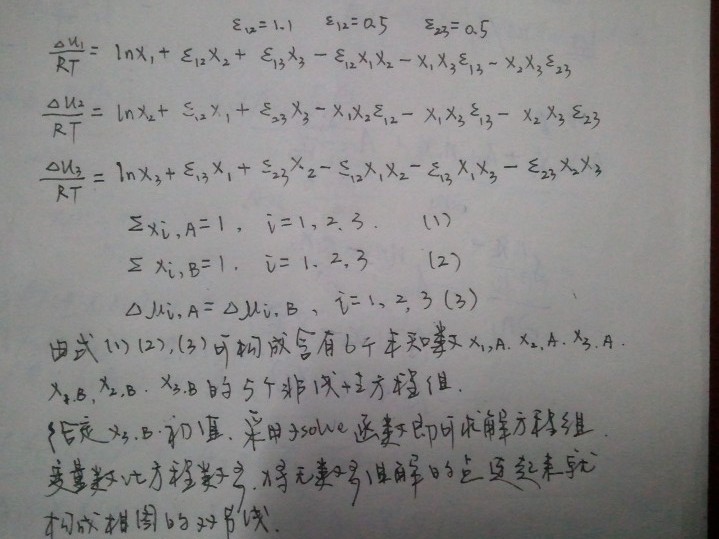 ε₁₂=1.1 ε₁₂=0.5 ε₂₃=0.5
Δu₁/RT = lnx₁ + ε₁₂x₂ + ε₁₃x₃ - ε₁₂x₁x₂ - x₁x₃ε₁₃ - x₂x₃ε₂₃
Δu₂/RT = lnx₂ + ε₁₂x₁ + ε₂₃x₃ - x₁x₂ε₁₂ - x₁x₃ε₁₃ - x₂x₃ε₂₃
Δu₃/RT = lnx₃ + ε₁₃x₁ + ε₂₃x₂ - ε₁₂x₁x₂ - ε₁₃x₁x₃ - ε₂₃x₂x₃
Σxi,A=1, i=1,2,3. (1)
Σxi,B=1. i=1.2,3 (2)
Δμi,A=Δμi,B, i=1,2,3 (3)
由式(1)(2),(3)可构成含有6个未知数x₁,A.x₂,A.x₃,A.
x₁,B,x₂,B.x₃,B的5个非线性方程组.
给定x₃,B初值.采用fsolve函数即可求解方程组.
变量数比方程数多,将无数多组解的点连起来就
构成相图的双节线.